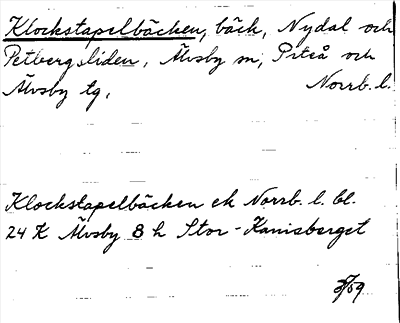 Klockstapelbäcken, bäck, Nydal och
Petbergsliden, Älvsby sn, Piteå och
Älvsby tg, Norrb. l.
Klockstapelbäcken ek Norrb. l. bl.
24 K Älvsby 8 h Stor-Kanisberget